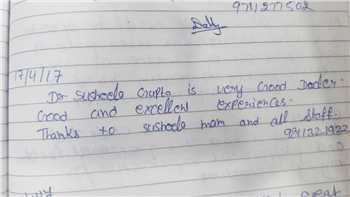 9711277502
Dolly
17/4/17
Dr Susheela Gupta is very Good Doctor.
Good and excellent experiences.
Thanks to susheela mam and all staff.
9811321922
great